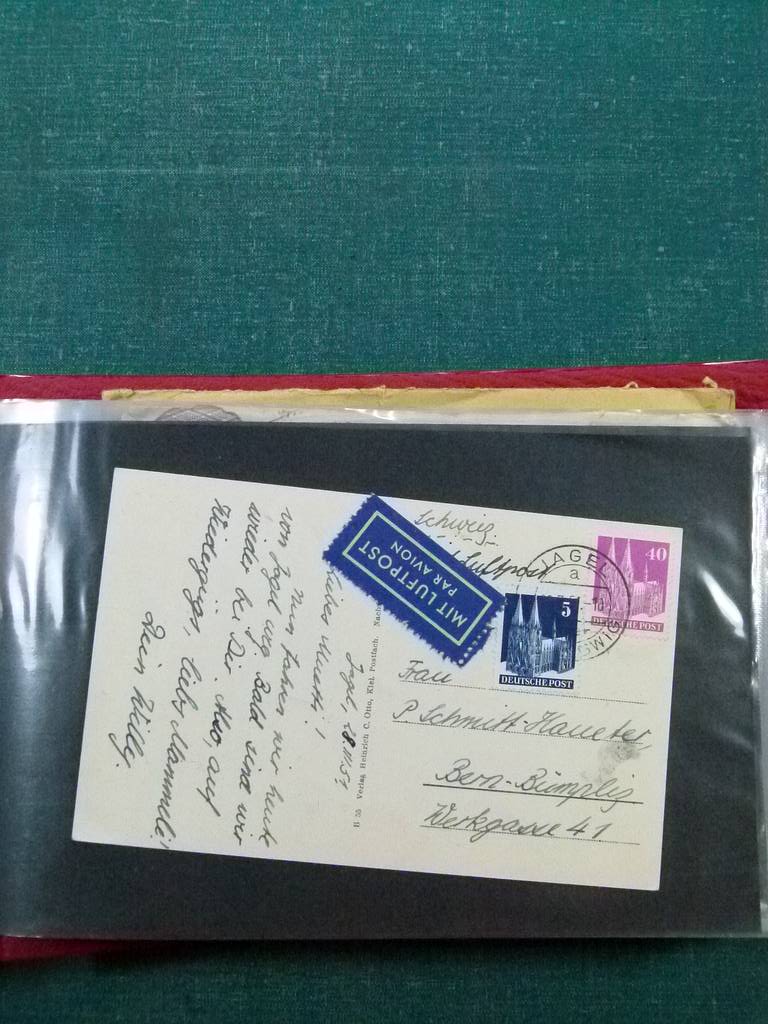 Schweiz
Luftpost
MIT LUFTPOST
PAR AVION
JAGEL
a
40
DEUTSCHE POST
5
DEUTSCHE POST
Frau
P. Schmitt-Haueter,
Bern-Bümpliz
Werkgasse 41
B 55 Verlag Heinrich C. Otto, Kiel, Postfach. Nach
Jagel,
Liebes Muetti!
Nun fahren wir heute
von Jagel weg. Bald sind wir
wieder bei Dir. Also, auf
Wiedersehn, liebs Mammeli!
Dein Willy.